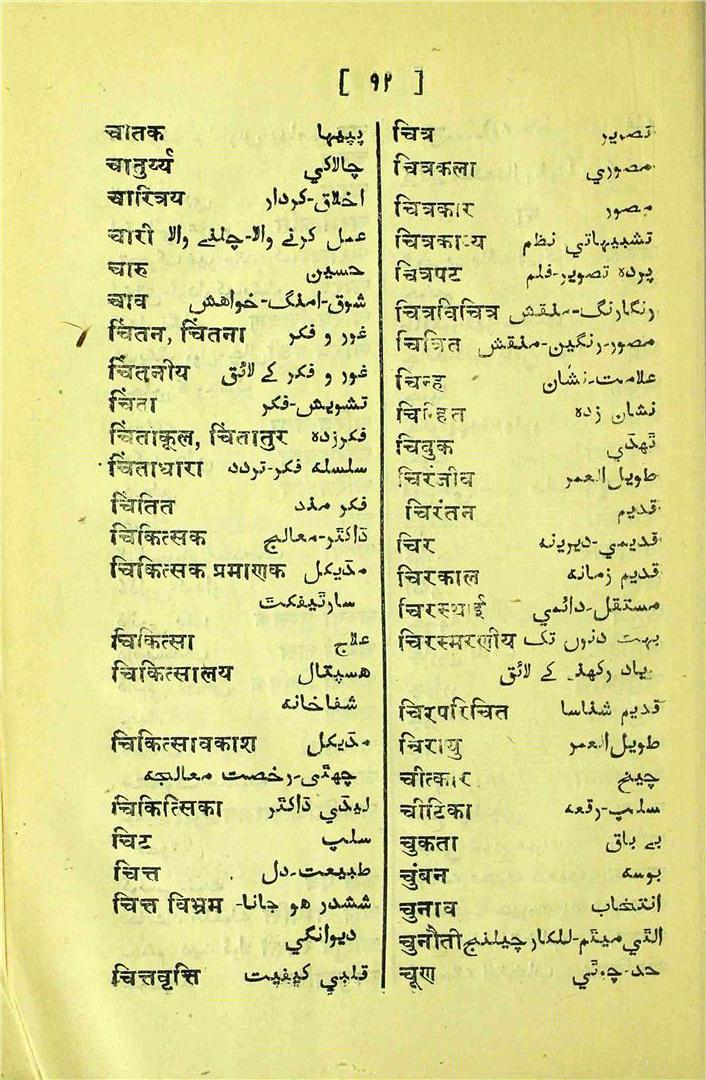 [ ९२ ]
चातक پپیہا
चातुर्य्य چالاکي
चारित्रय اخلاق-کردار
चारी عمل کرنے والا-چلنے والا
चारु حسین
चाव شوق-امنگ-خواهش
चिंतन, चिंतना غور و فکر
चिंतनीय غور و فکر کے لائق
चिंता تشویش-فکر
चिंताकूल, चिंतातुर فکرزدہ
चिंताधारा سلسلہ فکر-تردد
चिंतित فکر مند
चिकित्सक ڈاکٹر-معالج
चिकित्सक प्रमाणक مڈیکل
سارٹیفکٹ
चिकित्सा علاج
चिकित्सालय هسپتال
شفاخانہ
चिकित्सावकाश مڈیکل
چھٹی-رخصت معالجہ
चिकित्सिका لیڈي ڈاکٹر
चिट سلپ
चित्त طبیعت-دل
चित्त विभ्रम ششدر هو جانا-
دیوانگي
चित्तवृत्ति قلبي کیفیت
चित्र تصویر
चित्रकला مصوري
चित्रकार مصور
चित्रकाव्य تشبیهاتي نظم
चित्रपट پردہ تصویر-فلم
चित्रविचित्र رنگارنگ-منقش
चित्रित مصور-رنگین-منقش
चिन्ह علامت-نشان
चिन्हित نشان زدہ
चिबुक ٹھڈي
चिरंजीव طویل العمر
चिरंतन قدیم
चिर قدیمي-دیرینہ
चिरकाल قدیم زمانہ
चिरस्थाई مستقل-دائمي
चिरस्मरणीय بہت دنوں تک
یاد رکھنے کے لائق
चिरपरिचित قدیم شناسا
चिरायु طویل العمر
चीत्कार چیخ
चीटिका سلپ-رقعہ
चुकता بے باق
चुंबन بوسہ
चुनाव انتخاب
चुनौती الٹي میٹم-للکار چیلنج
चूण حد-چوٹي